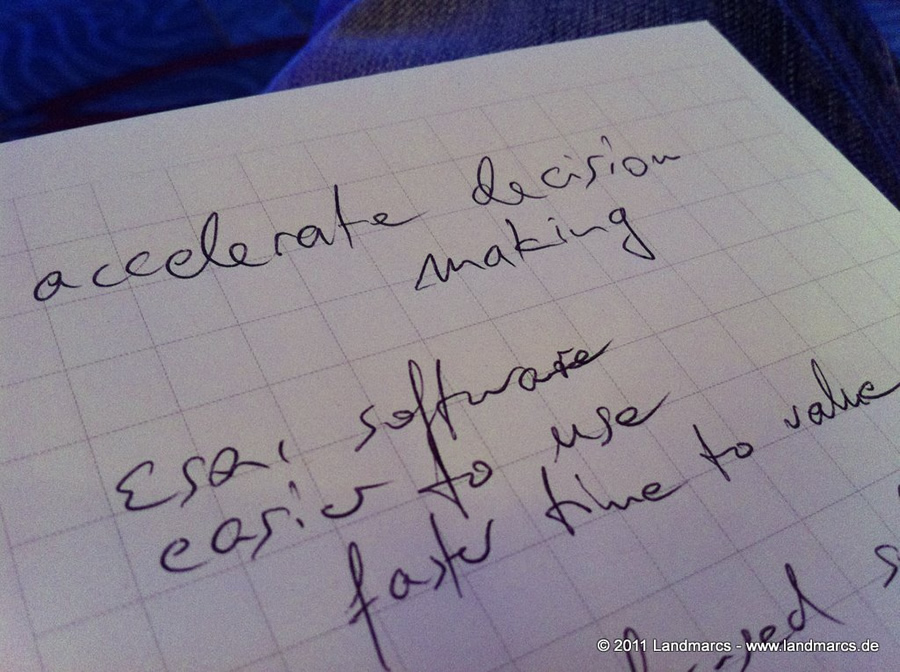 accelerate decision
making
Esri software
easier to use
faster time to value
© 2011 Landmarcs - www.landmarcs.de